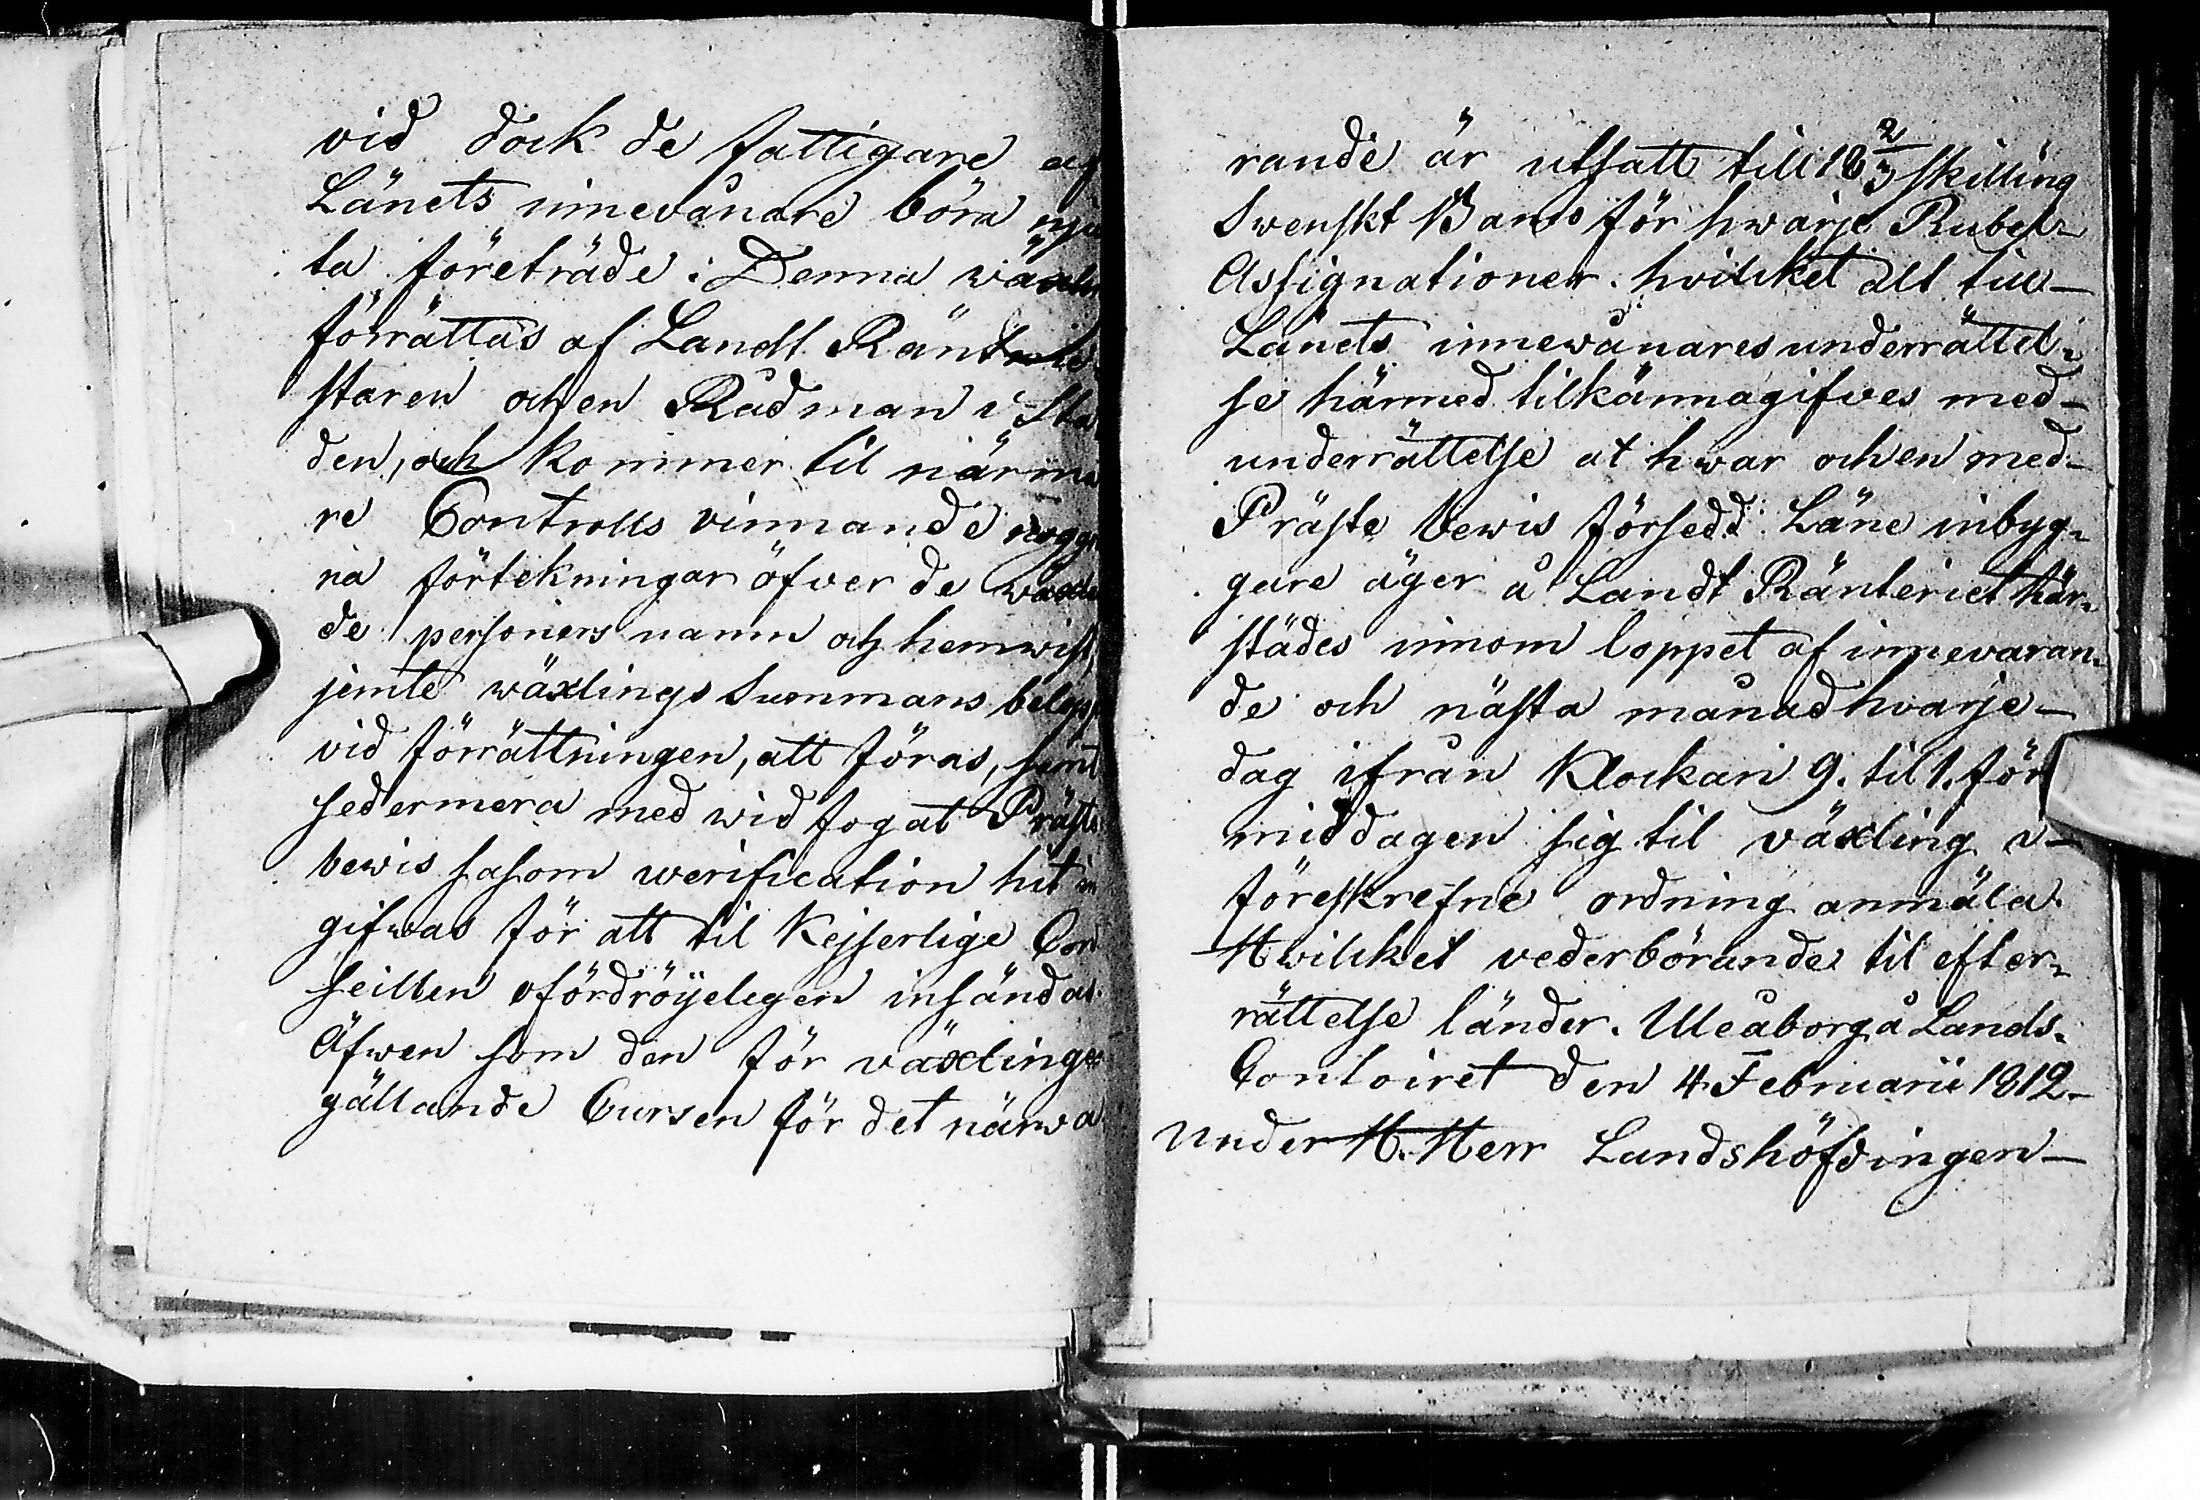 vid dock de fattigare af
Länets innevånare böra nju
ta företräde: Denna wäxlin
förrättas af Landt Räntmä
staren och en Rådman i Sta
den, och kommer til närma
re Controlls vinnande nogg
na förtekningar öfver de wäxlan
de personers namn och hemwist,
jemte wäxlings Summans belopp
vid förrättningen, att föras, samt
sedermera med widfogat Präste
bewis såsom werification hit in
gifwas för att til Kejserlige Con
seillen ofördröijeligen insändas.
Äfwen som den för växlings
gällande Cursen för det närwa
rande är utsatt till 18 2/3 skilling
Swenskt Banco för hwarje Rubel
Assignationer. hvilcket alt till
Länets innewånares underrättel-
se härmed tilkännagifves med
underrättelse at hwar och en med
Präste bewis försedd Läne inbyg-
gare äger å Landt Ränteriet här-
städes innom loppet af innevaran-
de och nästa månad hvarje
dag ifrån Klockan 9. til 1. för
middagen sig til växling i
föreskrefne ordning anmäla.
Hwilcket vederbörande til efter-
rättelse länder. Uleåborg å Lands-
Contoiret den 4 Februarii 1812
under H. Herr Landshöfdingen